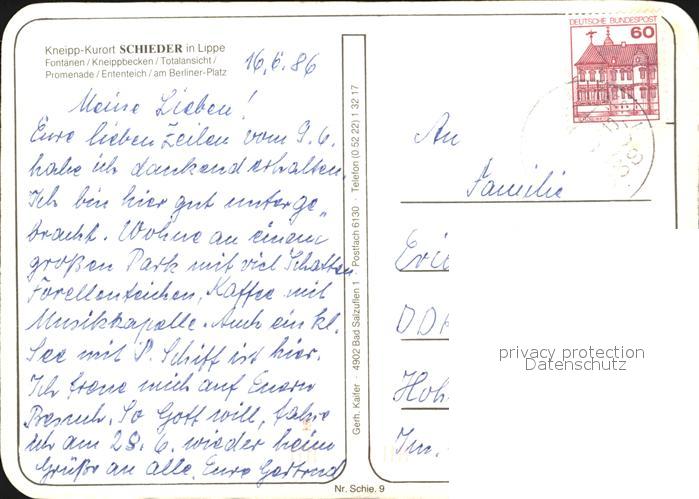 Kneipp-Kurort SCHIEDER in Lippe
Fontänen / Kneippbecken / Totalansicht /
Promenade / Ententeich / am Berliner-Platz
16.6.86
Meine Lieben!
Eure lieben Zeilen vom 9.6.
habe ich dankend erhalten.
Ich bin hier gut unterge„
bracht. Wohne an einem
großen Park mit viel Schatten
Forellenteichen, Kaffee mit
Musikkapelle. Auch ein kl.
See mit P. Schiff ist hier.
Ich freue mich auf Euern
Besuch. So Gott will, fahre
ich am 28.6. wieder heim
Grüße an alle. Eure Gertrud
Gerh. Kaifer · 4902 Bad Salzuflen 1 · Postfach 6130 · Telefon (0 52 22) 1 32 17
Nr. Schie. 9
DEUTSCHE BUNDESPOST
60
An
Familie
Eric
DDR
Hoh
Im
privacy protection
Datenschutz